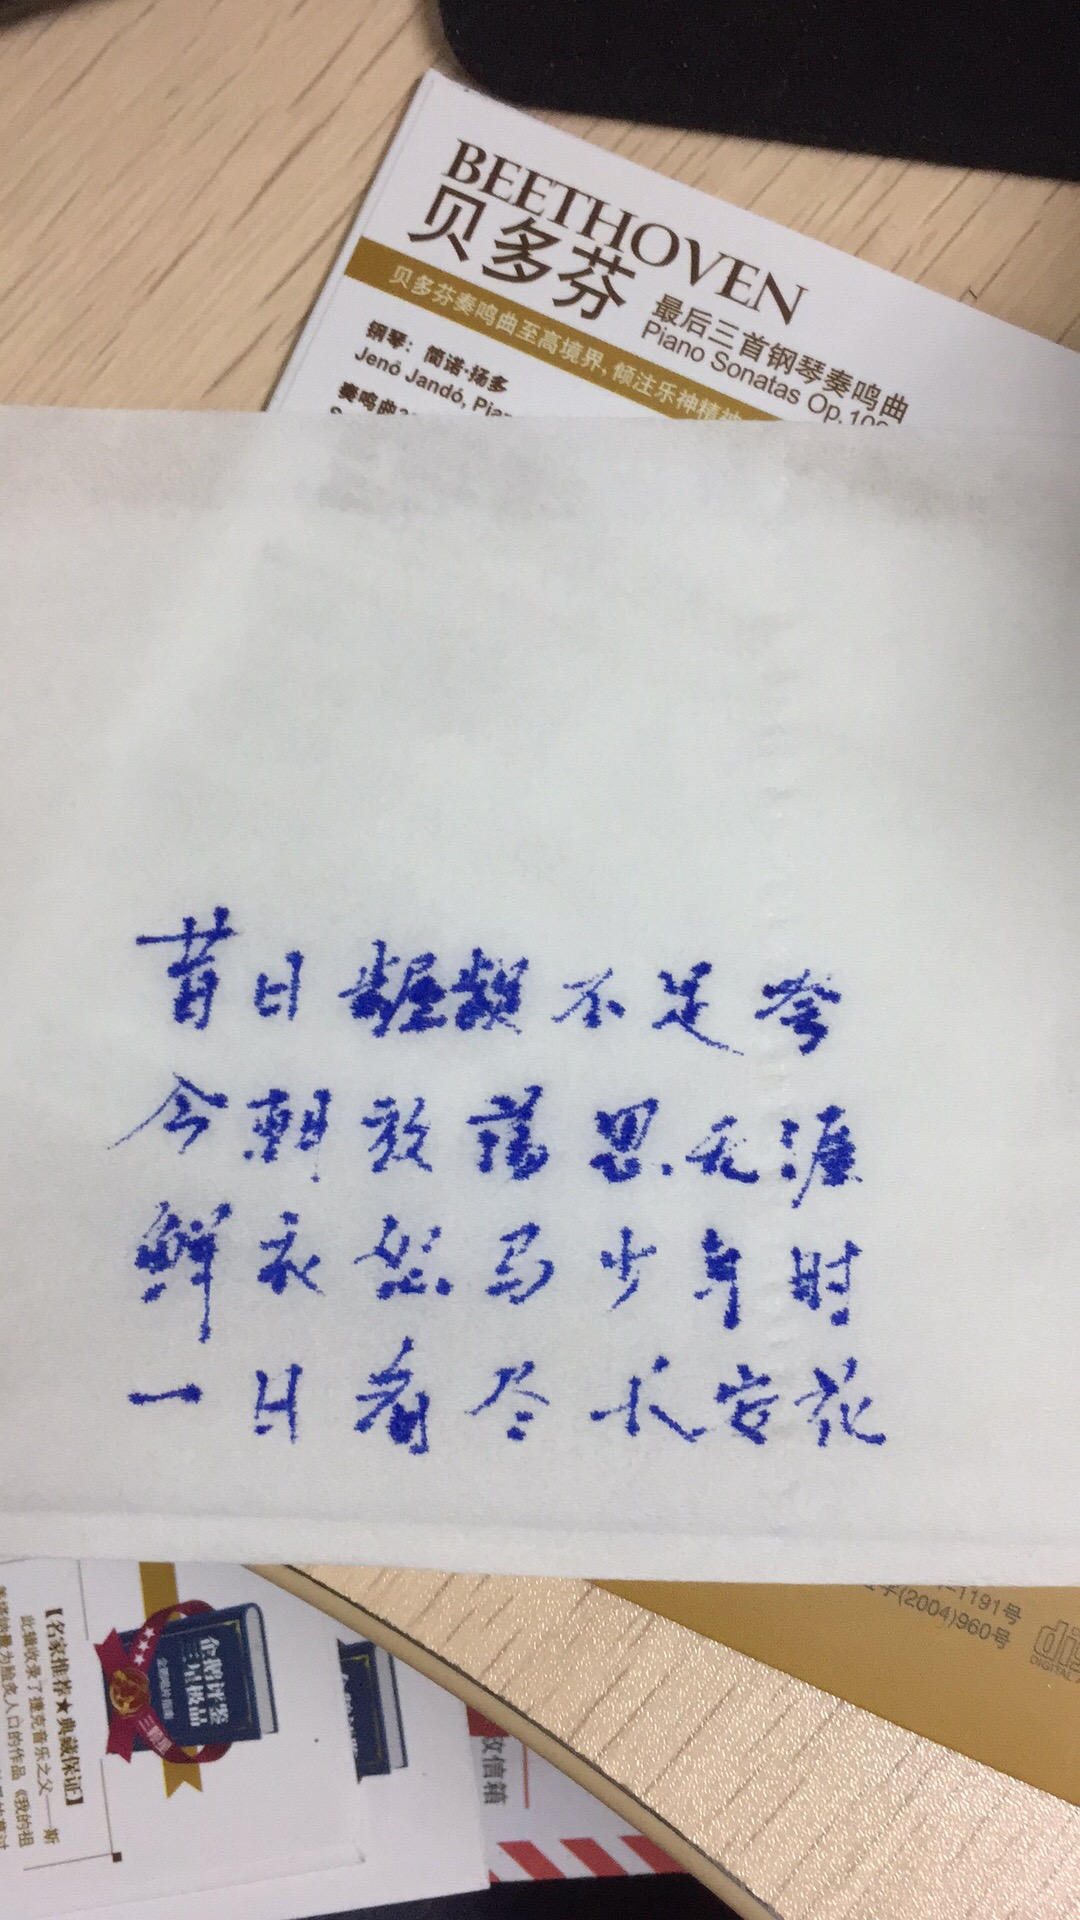 BEETHOVEN
贝多芬
最后三首钢琴奏鸣曲
Piano Sonatas Op.109
贝多芬奏鸣曲至高境界,倾注乐神精神
钢琴：简诺·扬多
Jenő Jandó, Pia
奏鸣曲
昔日龌龊不足夸
今朝放荡思无涯
鲜衣怒马少年时
一日看尽长安花
-1191号
字(2004)960号
DIGITAL A
【名家推荐★典藏保证】
此辑收录了捷克音乐之父——斯
为脍炙人口的作品《我的祖
企鹅评鉴
三星极品
三颗星
政信箱